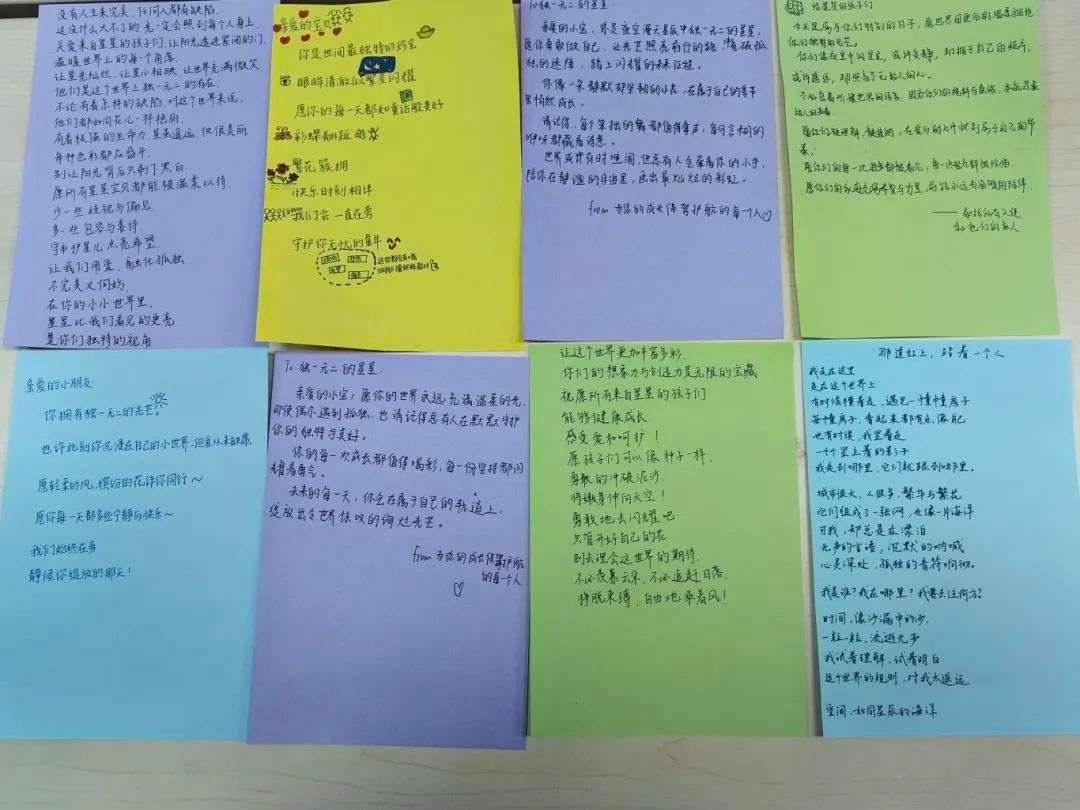 没有人生来完美,任何人都有缺陷
这没什么大不了的,光一定会照到每个人身上,
关爱来自星星的孩子们,让阳光透进紧闭的门,
温暖世界上的每个角落。
让星光灿烂,让星心相映,让世界充满微笑,
他们是这个世界上独一无二的存在,
不论有着怎样的缺陷,对这个世界来说,
他们都如同花儿一样艳丽,
有着极强的生命力,星虽遥远,但很美丽
每种色彩都应盛开,
别让阳光背后只剩下黑白
愿所有星星宝贝都能被温柔以待.
少一些歧视与偏见,
多一些包容与善待
守护星儿,点亮希望
让我们用爱,融化孤独
不完美又何妨,
在你的小小世界里,
星星比我们看见的更亮
是你们独特的视角
亲爱的宝贝
你是世间最独特的珍宝
眼眸清澈似繁星闪耀
愿你的每一天都如童话般美好
彩蝶翩跹
繁花簇拥
快乐时刻相伴
我们会一直在旁
守护你无忧的童年
To 独一无二的星星:
亲爱的小宝,你是夜空漫天星辰中独一无二的星星,
愿你勇敢做自己,让光芒照亮前行的路,
独的迷障,踏上闪耀的未来征程。
你像一朵静默却坚韧的小花,在属于自己的季节
里悄然成长。
请记得,每个笨拙的舞都值得掌声,每句含糊的
咿呀都藏着诗意。
世界或许有时喧闹,但总有人会牵着你的小手,
陪你在静谧的宇宙里,画出最灿烂的彩虹。
from 为你的成长保驾护航的每一个人♡
给星星的孩子们
今天是属于你们特别的日子,愿世界用更多的温柔拥抱
你们独有的光芒。
你们像夜空中的星星,或许安静,却拥有自己的轨迹,
或许遥远,却照亮了无数人的心。
动人的声音。
愿你们被理解、被接纳,在爱与耐心中找到属于自己的节
奏,
愿你们的每一次进步都被看见,每一点努力都被珍惜。
愿你们的家庭充满希望与力量,前路永远有温暖的陪伴。
和他们的家人
亲爱的小朋友:
你拥有独一无二的光芒。
也许此刻你沉浸在自己的小世界,但爱从未缺席。
愿轻柔的风,缤纷的花伴你同行~
愿你每一天都多些宁静与快乐~
我们始终在旁
静候你绽放的那天!
To 独一元二的星星:
亲爱的小宝,愿你的世界永远充满温柔的光,
即使偶尔遇到孤独,也请记得总有人在默默守护
你的独特与美好。
你的每一次成长都值得喝彩,每一份坚持都闪
耀着勇气。
未来的每一天,你会在属于自己的轨道上,
绽放出令世界惊叹的绚烂光芒。
from 为你的成长保驾护航
的每一个人
♡
让这个世界更加丰富多彩.
你们的想象力与创造力是无限的宝藏
祝愿所有来自星星的孩子们
能够健康成长
感受爱和呵护!
愿孩子们可以像种子一样,
勇敢的冲破泥沙,
将嫩芽伸向天空!
勇敢地去闪耀吧
只管开好自己的花
别去理会这世界的期待,
不必羡慕云朵,不必追赶日落,
挣脱束缚,自由地乘着风!
那道虹上,站着一个人
我走在这里
走在这个世界上
有时候横着走,遇见一幢幢房子
每幢房子,看起来都有点像自己
也有时候,我竖着走
一个个竖着的影子
我走到哪里,它们就跟到哪里。
城市很大,人很多,繁华与繁花
它们组成了一张网,也像一片海洋
可我,却总是在漂泊
无声的言语,沉默的呐喊
心灵深处,孤独的音符响彻。
我是谁?我在哪里?我要去往何方?
时间,像沙漏中的沙,
一粒一粒,流逝无声
我试着理解,试着明白
这个世界的规则,对我太遥远
空间,如同星辰的海洋